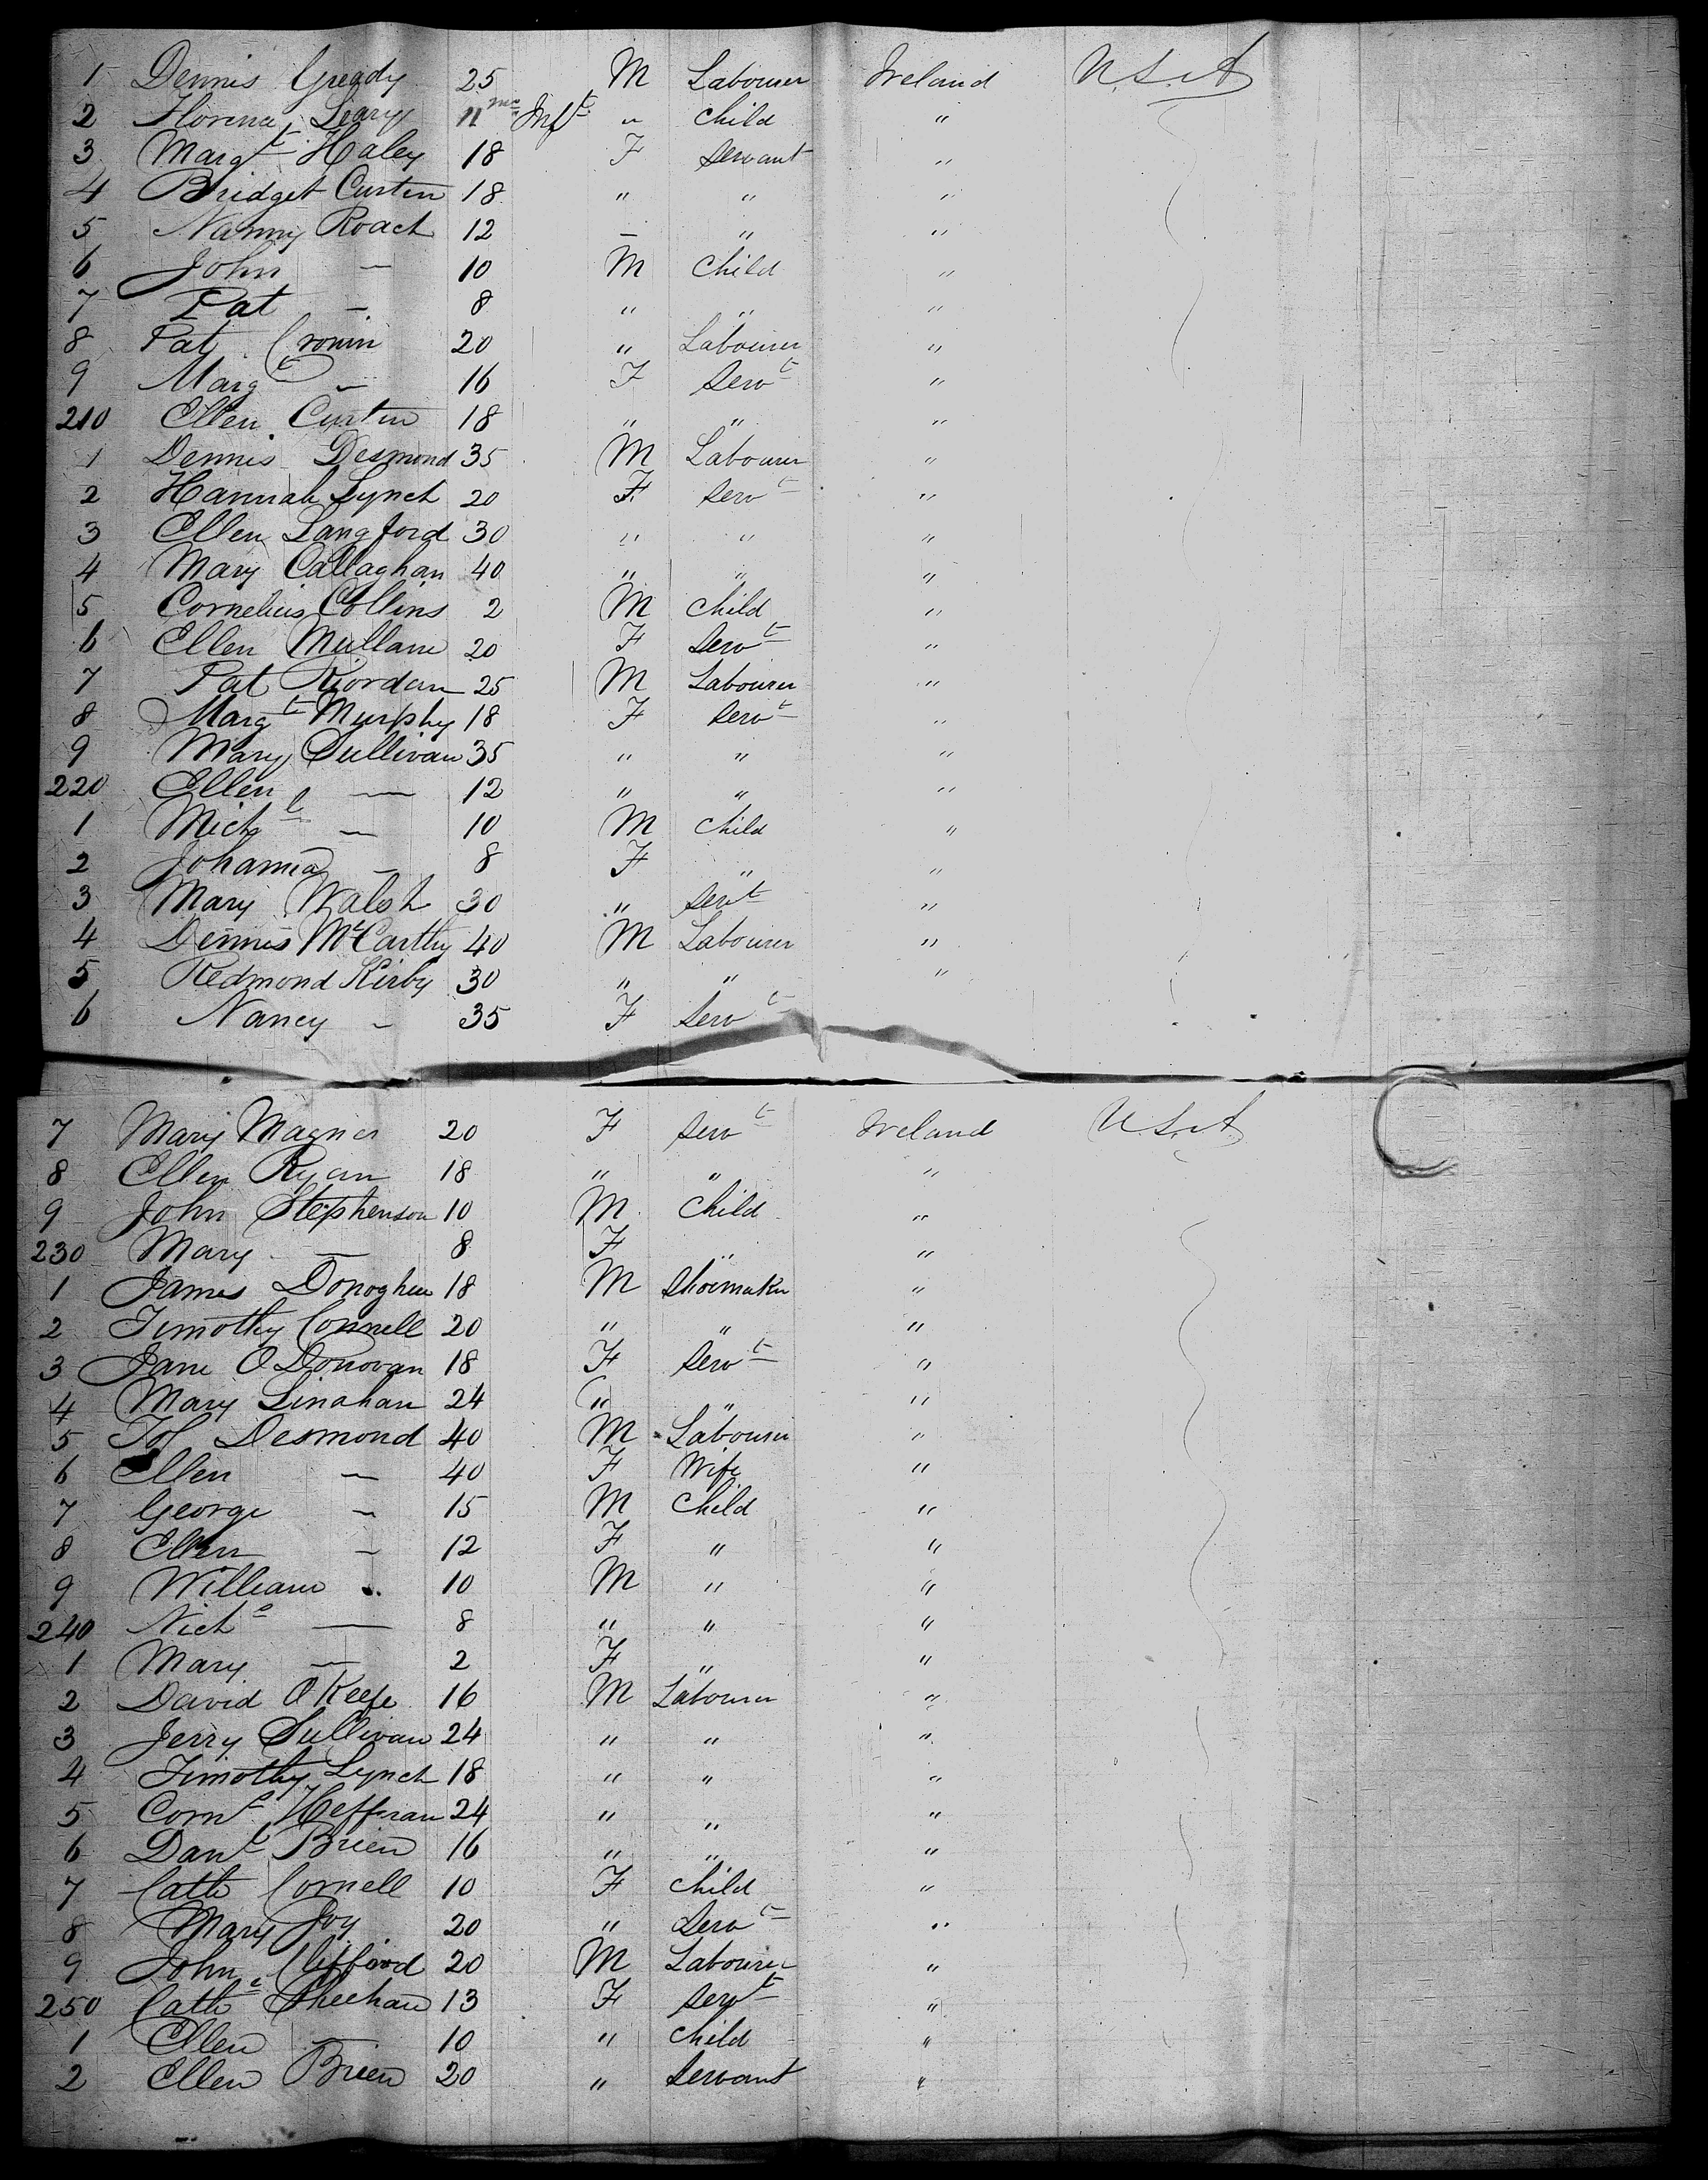 1 Dennis Gready 25 M Labourer Ireland U.S.A
2 Florence Leary 11 mos Inft " child "
3 Margt Haley 18 F servant "
4 Bridget Curtin 18 " " "
5 Nanny Roach 12 – " "
6 John — 10 M Child "
7 Pat — 8 " " "
8 Pat Cronin 20 " Labourer "
9 Margt — 16 F Servt "
210 Ellen Curtin 18 " " "
1 Dennis Desmond 35 M Labourer "
2 Hannah Lynch 20 F Servt "
3 Ellen Langford 30 " " "
4 Mary Callaghan 40 " " "
5 Cornelius Collins 2 M Child "
6 Ellen Mullane 20 F Servt "
7 Pat Riordan 25 M Labourer "
8 Margt Murphy 18 F Servt "
9 Mary Sullivan 35 " " "
220 Ellen — 12 " " "
1 Michl — 10 M Child "
2 Johanna — 8 F " "
3 Mary Walsh 30 " Servt "
4 Dennis McCarthy 40 M Labourer "
5 Redmond Kirby 30 " " "
6 Nancy — 35 F Servt
7 Mary Magner 20 F Servt Ireland U.S.A
8 Ellen Ryan 18 " " "
9 John Stephenson 10 M Child "
230 Mary — 8 F " "
1 James Donoghue 18 M Shoemaker "
2 Timothy Connell 20 " " "
3 Jane O Donovan 18 F Servt "
4 Mary Linahan 24 " " "
5 Desmond 40 M Labourer "
6 Ellen — 40 F Wife "
7 George — 15 M Child "
8 Ellen — 12 F " "
9 William " 10 M " "
240 Nichs — 8 " " "
1 Mary — 2 F " "
2 David O Keefe 16 M Labourer "
3 Jerry Sullivan 24 " " "
4 Timothy Lynch 18 " " "
5 Cornl Heffran 24 " " "
6 Danl Brien 16 " " "
7 Cath Connell 10 F Child "
8 Mary Joy 20 " Servt "
9 John Clifford 20 M Labourer "
250 Cathe Sheehan 13 F Servt "
1 Ellen — 10 " Child "
2 Ellen Brien 20 " Servant "